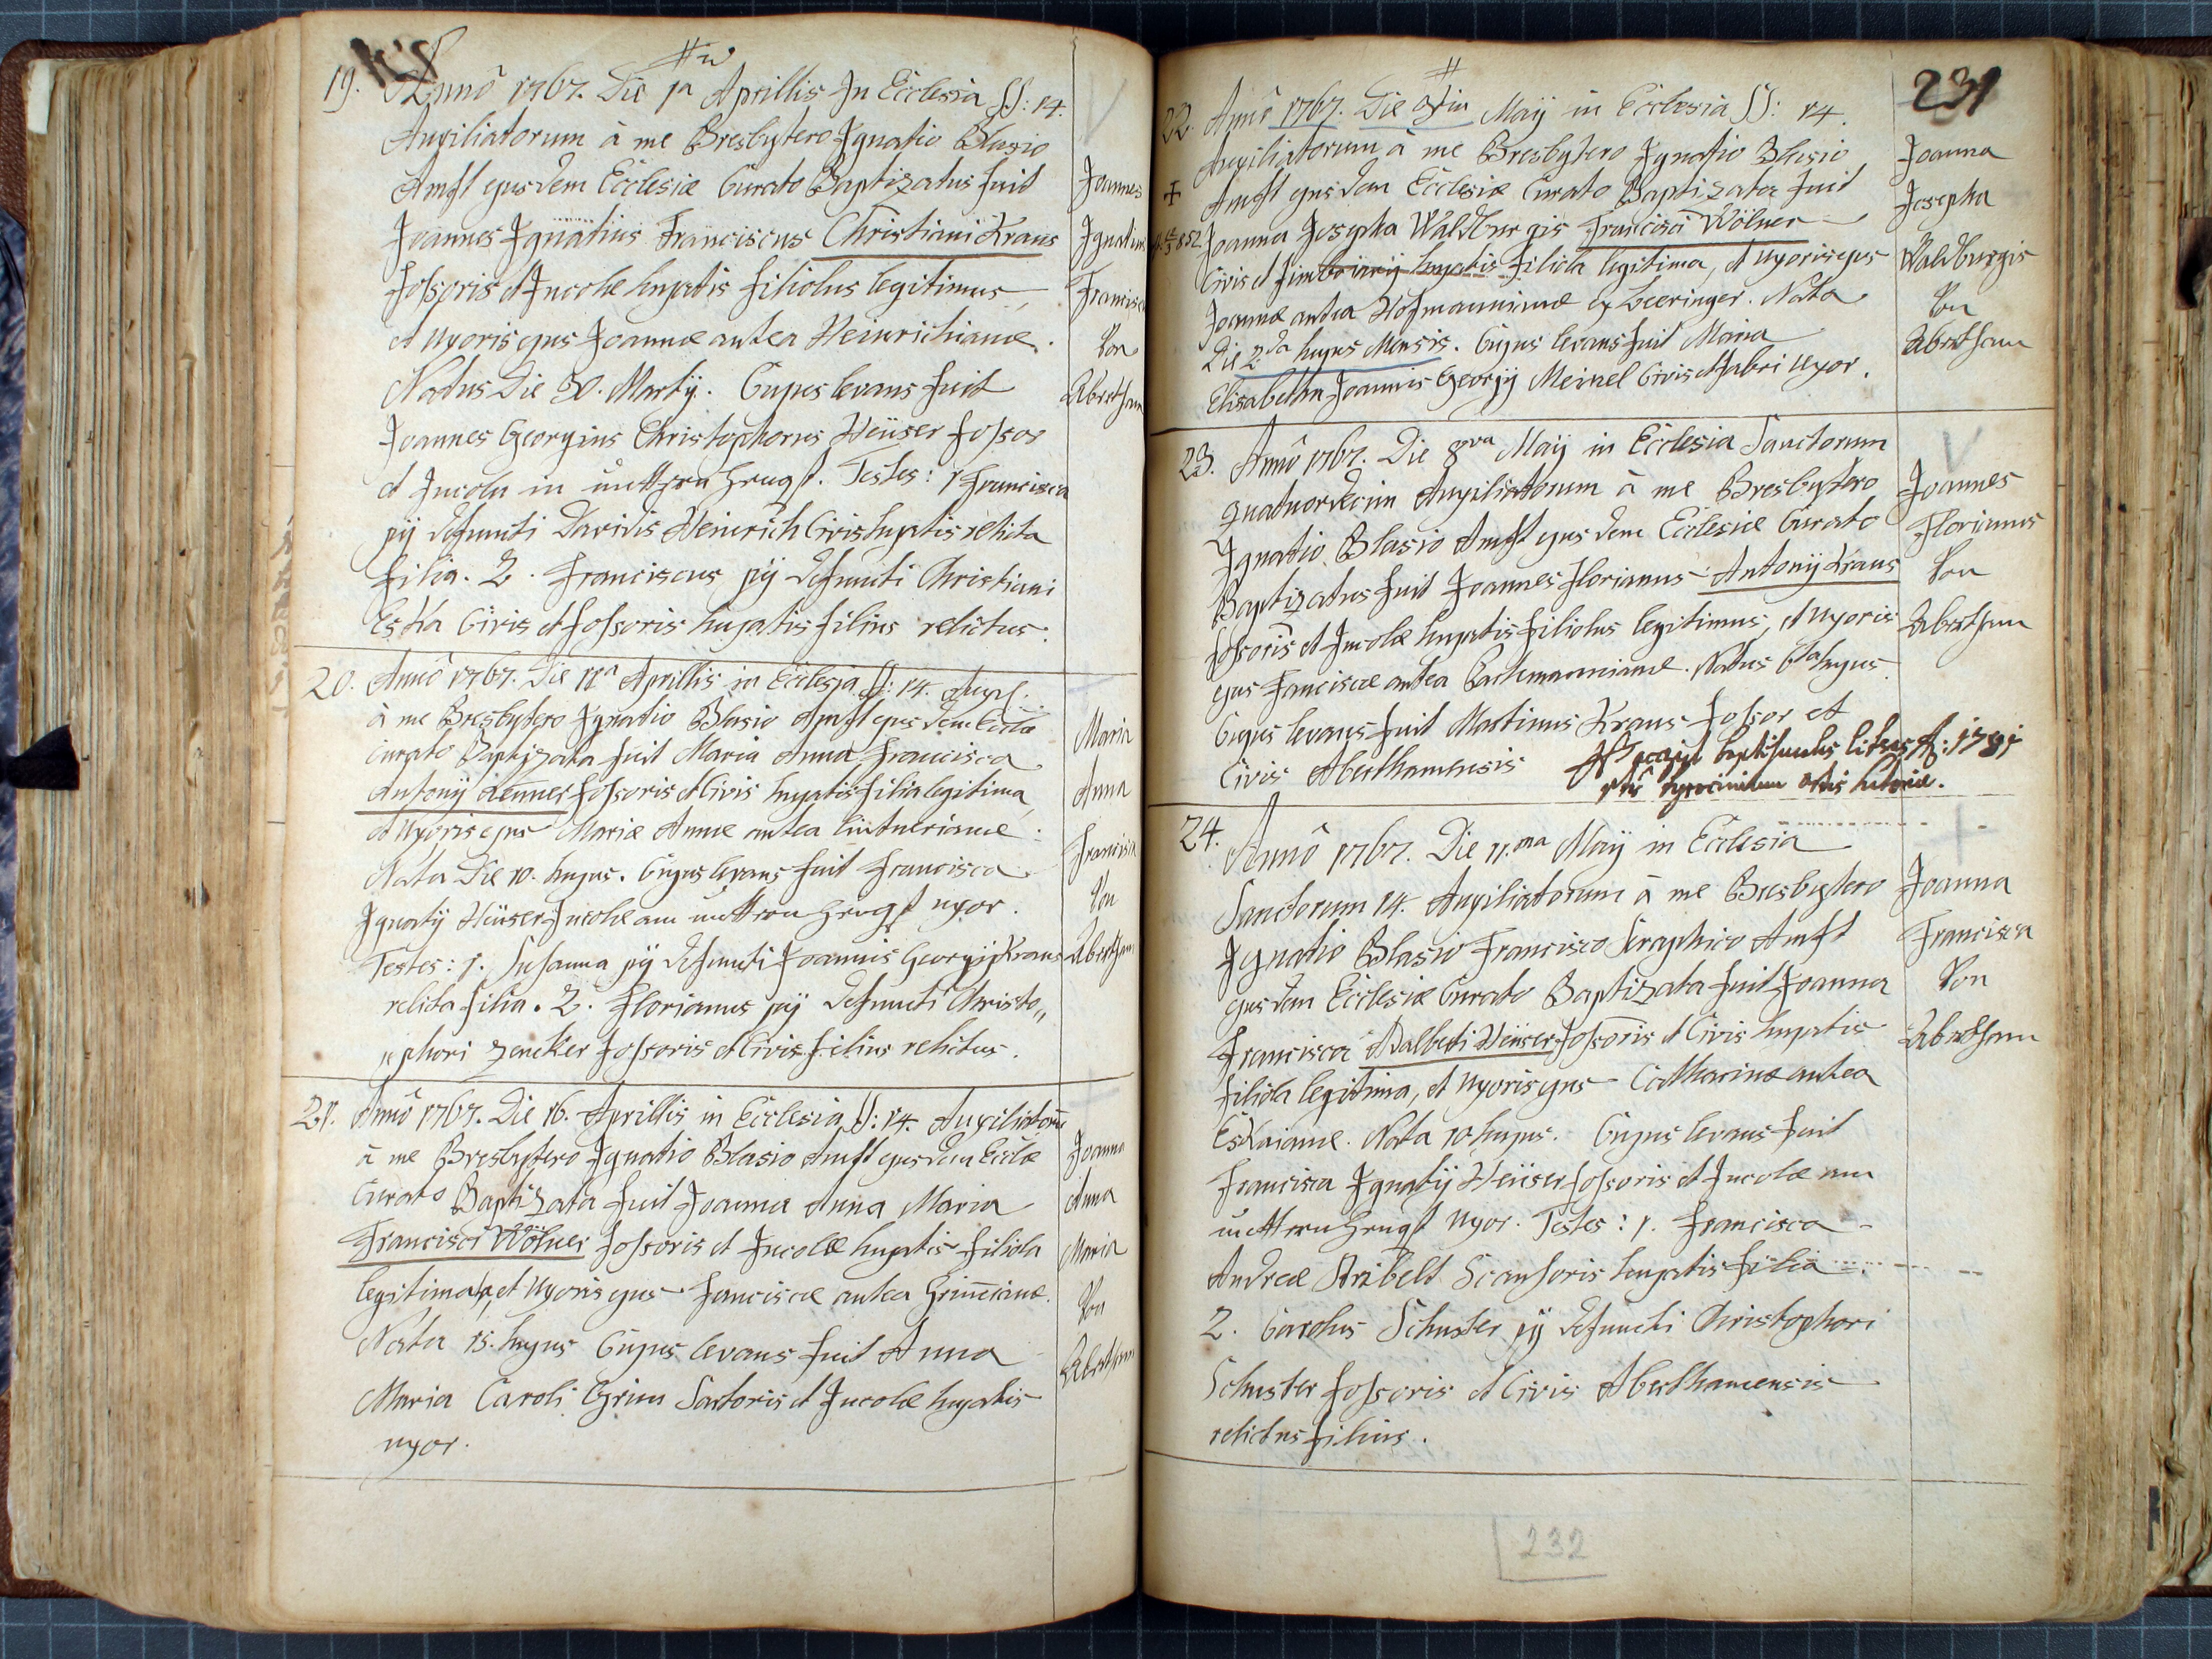 19. Annô 1767. Die 1a Aprillis In Ecclesia SS: 14.
Auxiliatorum à me Presbytero Ignatio Blasio
Ambst ejusdem Ecclesiæ Curato Baptizatus fuit
Joannes Ignatius Franciscus Christiani Kraus
fossoris et Incolæ hujatis filiolus legitimus,
et Uxoris ejus Joannæ antea Heinrichianæ.
Natus Die 30. Martij. Cujus levans fuit
Joannes Georgius Christophorus Heüser fossor
et Incola in Testes: 1 Francisca
pij defuncti Davidis Heinrich Civis hujatis relicta
filia. 2. Franciscus pij defuncti Christiani
Eska Civis et fossoris hujatis filius relictus.
Joannes
Ignatius
Francisc
Von
Abertham
20. Annô 1767. Die 11a Aprillis in Ecclesia SS: 14. Auxil.
à me Presbytero Ignatio Blasio Ambst ejusdem Eccl̄æ
Curato Baptizata fuit Maria Anna Francisca
Antonij Lenner fossoris et Civis hujatis filia legitima,
et Uxoris ejus Mariæ Annæ antea Lintnerianæ.
Nata Die 10. hujus. Cujus levans fuit Francisca
Ignatij Heüser Incolæ am uxor.
Testes: 1. Susanna pij defuncti Joannis Georgij Kraus
relicta filia. 2. Florianus pij defuncti Christo„
„phori Zencker fossoris et Civis filius relictus.
Maria
Anna
Francisca
Von
Abertham
21. Annô 1767. Die 16. Aprillis in Ecclesia SS: 14. Auxiliatorū
à me Presbytero Ignatio Blasio Ambst ejusdem Eccl̄æ
Curato Baptizata fuit Joanna Anna Maria
Francisci Wölner fossoris et Incolæ hujatis filiola
legitima, et Uxoris ejus Franciscæ antea Grim̄ianæ.
Nata 15. hujus Cujus levans fuit Anna
Maria Caroli Grim Sartoris et Incolæ hujatis
uxor.
Joanna
Anna
Maria
Von
Abertham
231
22. Annô 1767. Die Maij in Ecclesia SS: 14.
Auxiliatorum à me Presbytero Ignatio Blasio
Ambst ejusdem Ecclesiæ Curato Baptizata fuit
Joanna Josepha Waldburgis Francisci Wölner
Civis et hujatis filiola legitima, et Uxoris ejus
Joannæ antea Hofmannianæ ex Beeringer. Nata
Die 2da hujus Mensis. Cujus levans fuit Maria
Elisabetha Joannis Georgij Meinel Civis et fabri uxor.
Joanna
Josepha
Waldburgis
Von
Abertham
23. Annô 1767. Die 8va Maij in Ecclesia Sanctorum
quatuordecim Auxiliatorum à me Presbytero
Ignatio Blasio Ambst ejusdem Ecclesiæ Curato
Baptizatus fuit Joannes Florianus Antonij Kraus
fossoris et Incolæ hujatis filiolus legitimus, et Uxoris
ejus Franciscæ antea Bachmannianæ. Natus 6ta hujus
Cujus levans fuit Martinus Kraus fossor et
Civis Aberthamensis
Joannes
Florianus
Von
Abertham
24. Annô 1767. Die 11.ma Maij in Ecclesia
Sanctorum 14. Auxiliatorum à me Presbytero
Ignatio Blasio Francisco Seraphico Ambst
ejusdem Ecclesiæ Curato Baptizata fuit Joanna
Francisca Adalberti Heüser fossoris et Civis hujatis
filiola legitima, et Uxoris ejus Catharinæ antea
Eskaianæ. Nata 10 hujus. Cujus levans fuit
Francisca Ignatij Heüser fossoris et Incolæ am
Uxor. Testes: 1. Francisca
Andreæ Scansoris hujatis filia.
2. Carolus Schuster pij defuncti Christophori
Schuster fossoris et Civis Aberthamensis
relictus filius.
Joanna
Francisca
Von
Abertham
232